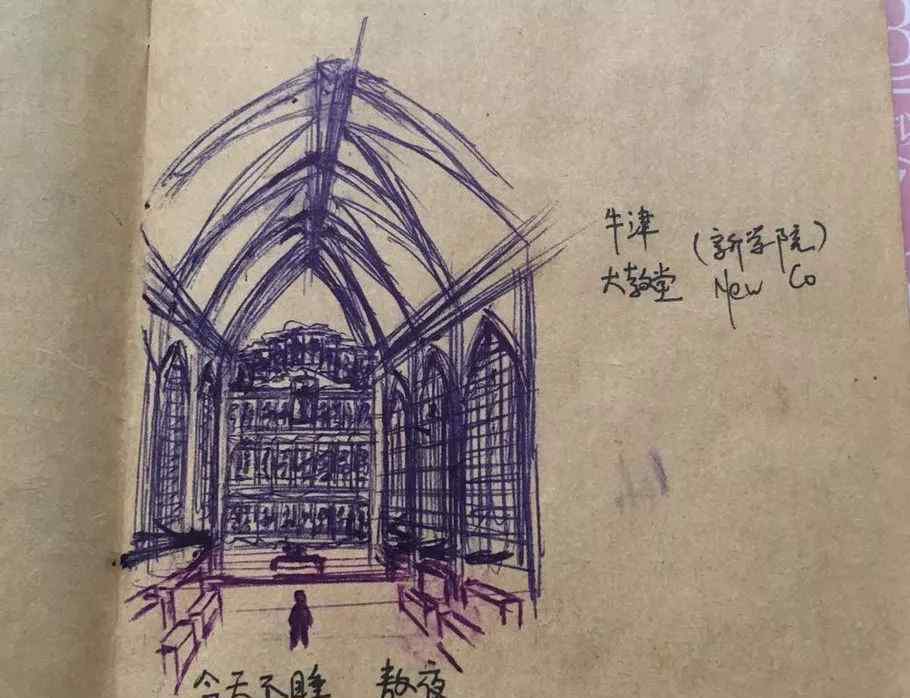 牛津 (新学院)
大教堂 New Co
今天不睡 熬夜